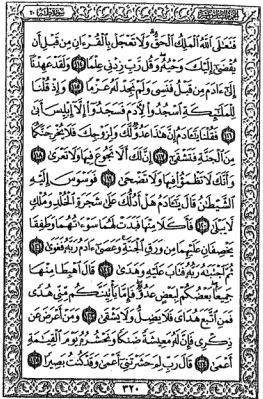 فَتَعَٰلَى ٱللَّهُ ٱلْمَلِكُ ٱلْحَقُّ وَلَا تَعْجَلْ بِٱلْقُرْءَانِ مِن قَبْلِ أَن
يُقْضَىٰٓ إِلَيْكَ وَحْيُهُۥ وَقُل رَّبِّ زِدْنِى عِلْمًا ﴿١١٤﴾ وَلَقَدْ عَهِدْنَآ
إِلَىٰٓ ءَادَمَ مِن قَبْلُ فَنَسِىَ وَلَمْ نَجِدْ لَهُۥ عَزْمًا ﴿١١٥﴾ وَإِذْ قُلْنَا
لِلْمَلَٰٓئِكَةِ ٱسْجُدُوا۟ لِءَادَمَ فَسَجَدُوٓا۟ إِلَّآ إِبْلِيسَ أَبَىٰ
﴿١١٦﴾ فَقُلْنَا يَٰٓـَٔادَمُ إِنَّ هَٰذَا عَدُوٌّ لَّكَ وَلِزَوْجِكَ فَلَا يُخْرِجَنَّكُمَا
مِنَ ٱلْجَنَّةِ فَتَشْقَىٰٓ ﴿١١٧﴾ إِنَّ لَكَ أَلَّا تَجُوعَ فِيهَا وَلَا تَعْرَىٰ ﴿١١٨﴾
وَأَنَّكَ لَا تَظْمَؤُا۟ فِيهَا وَلَا تَضْحَىٰ ﴿١١٩﴾ فَوَسْوَسَ إِلَيْهِ
ٱلشَّيْطَٰنُ قَالَ يَٰٓـَٔادَمُ هَلْ أَدُلُّكَ عَلَىٰ شَجَرَةِ ٱلْخُلْدِ وَمُلْكٍ
لَّا يَبْلَىٰ ﴿١٢٠﴾ فَأَكَلَا مِنْهَا فَبَدَتْ لَهُمَا سَوْءَٰتُهُمَا وَطَفِقَا
يَخْصِفَانِ عَلَيْهِمَا مِن وَرَقِ ٱلْجَنَّةِ وَعَصَىٰٓ ءَادَمُ رَبَّهُۥ فَغَوَىٰ ﴿١٢١﴾
ثُمَّ ٱجْتَبَٰهُ رَبُّهُۥ فَتَابَ عَلَيْهِ وَهَدَىٰ ﴿١٢٢﴾ قَالَ ٱهْبِطَا مِنْهَا
جَمِيعًۢا بَعْضُكُمْ لِبَعْضٍ عَدُوٌّ فَإِمَّا يَأْتِيَنَّكُم مِّنِّى هُدًى
فَمَنِ ٱتَّبَعَ هُدَاىَ فَلَا يَضِلُّ وَلَا يَشْقَىٰ ﴿١٢٣﴾ وَمَنْ أَعْرَضَ عَن
ذِكْرِى فَإِنَّ لَهُۥ مَعِيشَةً ضَنكًا وَنَحْشُرُهُۥ يَوْمَ ٱلْقِيَٰمَةِ
أَعْمَىٰ ﴿١٢٤﴾ قَالَ رَبِّ لِمَ حَشَرْتَنِىٓ أَعْمَىٰ وَقَدْ كُنتُ بَصِيرًا ﴿١٢٥﴾
٣٢٠